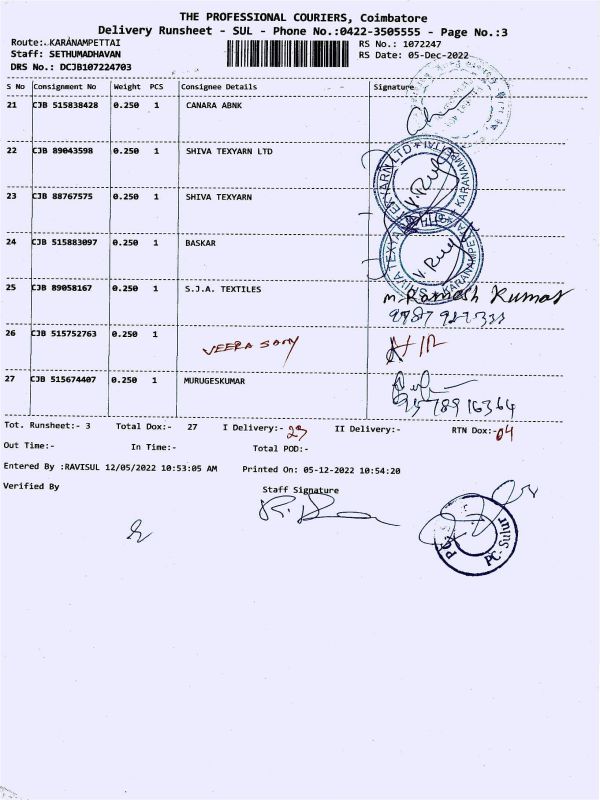 THE PROFESSIONAL COURIERS, Coimbatore
Delivery Runsheet - SUL - Phone No.:0422-3505555 - Page No.:3
Route:.KARANAMPETTAI RS No.: 1072247
Staff: SETHUMADHAVAN RS Date: 05-Dec-2022
DRS No.: DCJB107224703
S No Consignment No Weight PCS Consignee Details Signature
21 CJB 515838428 0.250 1 CANARA ABNK
22 CJB 89043598 0.250 1 SHIVA TEXYARN LTD
23 CJB 88767575 0.250 1 SHIVA TEXYARN
24 CJB 515883097 0.250 1 BASKAR
25 CJB 89058167 0.250 1 S.J.A. TEXTILES m. Ramesh Kumar
26 CJB 515752763 0.250 1 VEERA SAMY
27 CJB 515674407 0.250 1 MURUGESKUMAR
9578916364
Tot. Runsheet:- 3 Total Dox:- 27 I Delivery:- 23 II Delivery:- RTN Dox:- 04
Out Time:- In Time:- Total POD:-
Entered By :RAVISUL 12/05/2022 10:53:05 AM Printed On: 05-12-2022 10:54:20
Verified By Staff Signature
PC-Sulur